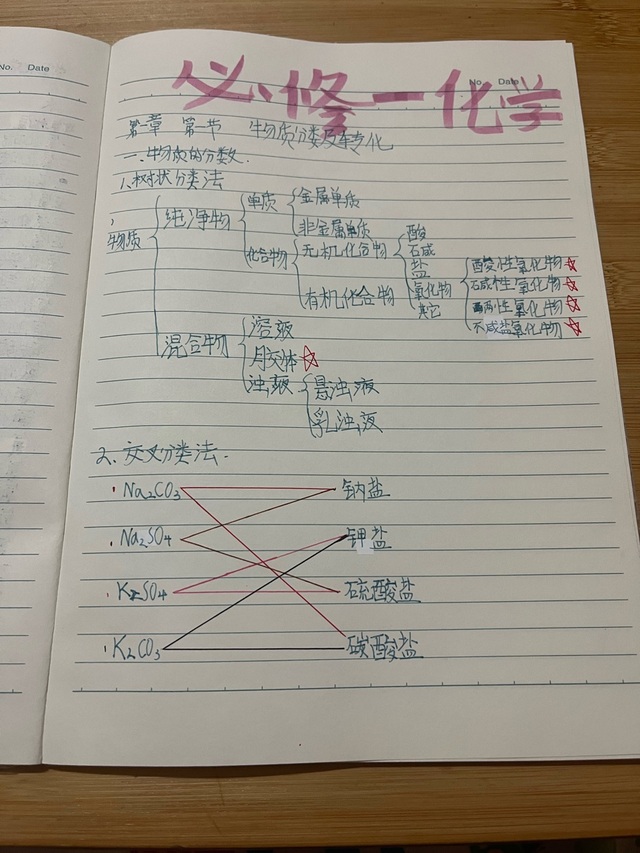 No. Date
No. Date
必修一化学
第一章 第一节 物质分类及转化
一、物质的分类
1、树状分类法
物质
纯净物
单质
金属单质
非金属单质
化合物
无机化合物
酸
碱
盐
氧化物
其它
酸性氧化物
碱性氧化物
两性氧化物
不成盐氧化物
有机化合物
混合物
溶液
胶体
浊液
悬浊液
乳浊液
2、交叉分类法
Na2CO3 钠盐
Na2SO4 钾盐
K2SO4 硫酸盐
K2CO3 碳酸盐